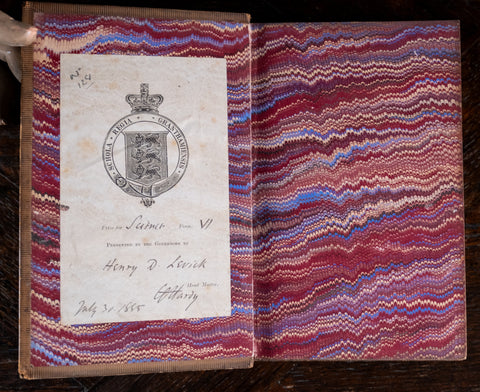 No
124
SCHOLA REGIA GRANTHAMIENSIS
Prize for Science Form VI
Presented by the Governors to
Henry D. Levick
Head Master.
Hardy
July 31 1888